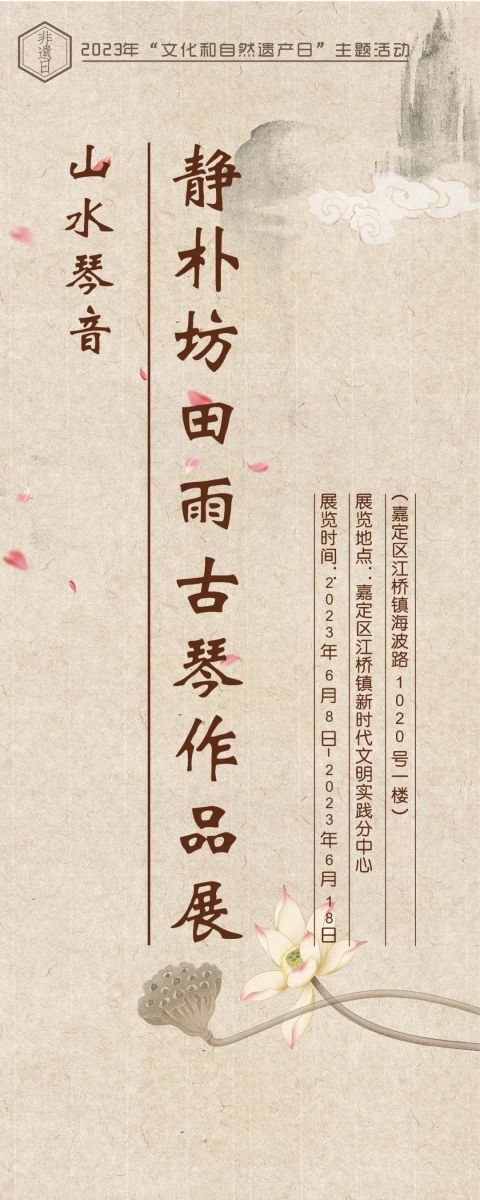 非遗日
2023年“文化和自然遗产日”主题活动
山水琴音
静朴坊田雨古琴作品展
展览时间：2023年6月8日-2023年6月18日
展览地点：嘉定区江桥镇新时代文明实践分中心
（嘉定区江桥镇海波路1020号一楼）